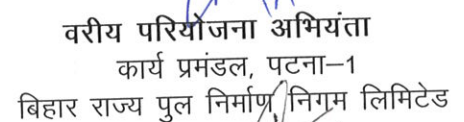 वरीय परियोजना अभियंता
कार्य प्रमंडल, पटना–1
बिहार राज्य पुल निर्माण निगम लिमिटेड